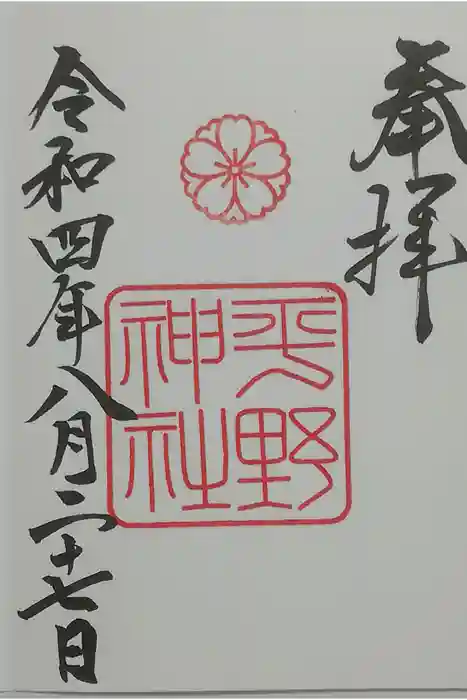 奉拝
平野
神社
令和四年八月二十七日